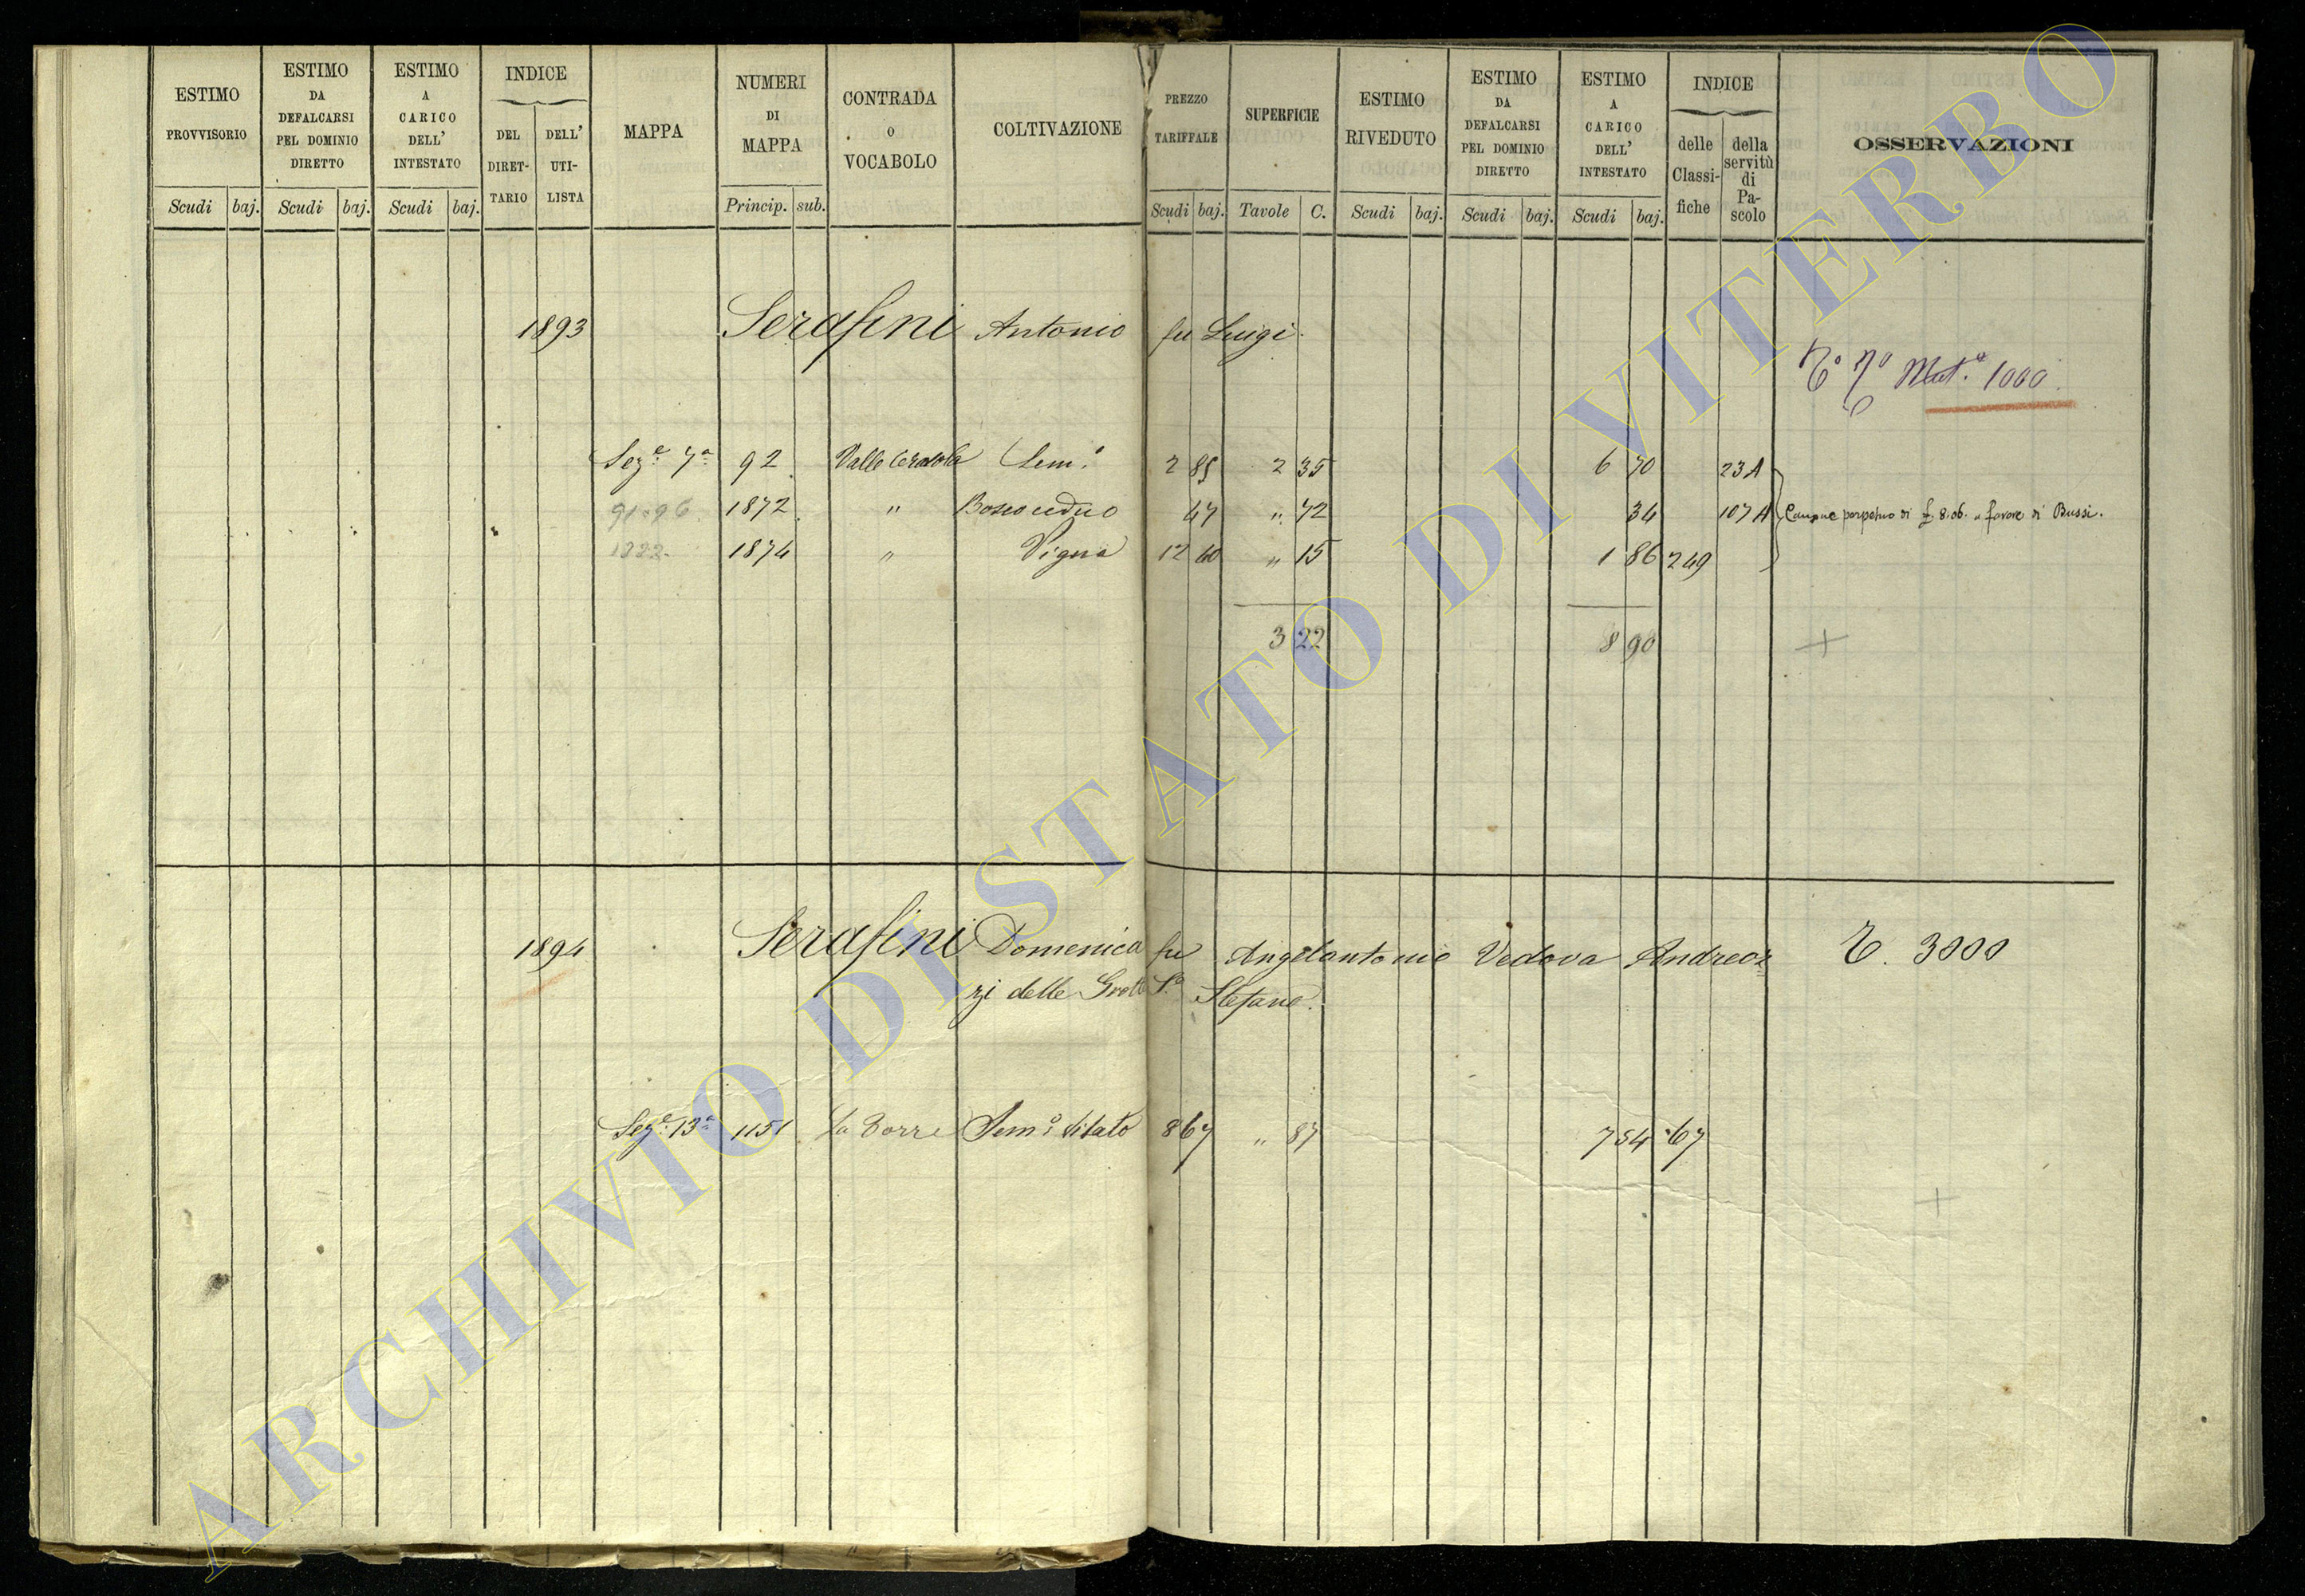 ESTIMO PROVVISORIO
Scudi baj.
ESTIMO DA DEFALCARSI PEL DOMINIO DIRETTO
Scudi baj.
ESTIMO A CARICO DELL' INTESTATO
Scudi baj.
INDICE
DEL DIRET-TARIO
DELL' UTI-LISTA
MAPPA
NUMERI DI MAPPA
Princip. sub.
CONTRADA O VOCABOLO
COLTIVAZIONE
PREZZO TARIFFALE
Scudi baj.
SUPERFICIE
Tavole C.
ESTIMO RIVEDUTO
Scudi baj.
ESTIMO DA DEFALCARSI PEL DOMINIO DIRETTO
Scudi baj.
ESTIMO A CARICO DELL' INTESTATO
Scudi baj.
INDICE
delle Classi-fiche
della servitù di Pa-scolo
OSSERVAZIONI
1893 Serafini Antonio fu Luigi.
Mat.a 1000.
Seze. 7a 92 Valle Cerasola Sem.o 2 85 2 35 6 70 23A
91=96. 1872 " Bosco ceduo 47 " 72 34 107A Canone perpetuo di £. 8.06. a favore di Bussi.
1874 " Vigna 12 40 " 15 1 86 249
3 22 8 90 +
1894 Serafini Domenica fu Angelantonio Vedova Andreoz
zi delle Grotte S.o Stefano. 3000
Seze. 13a 1151 La Torre Sem.o Vitato 8 67 " 87 7 54 67
+
ARCHIVIO DI STATO DI VITERBO